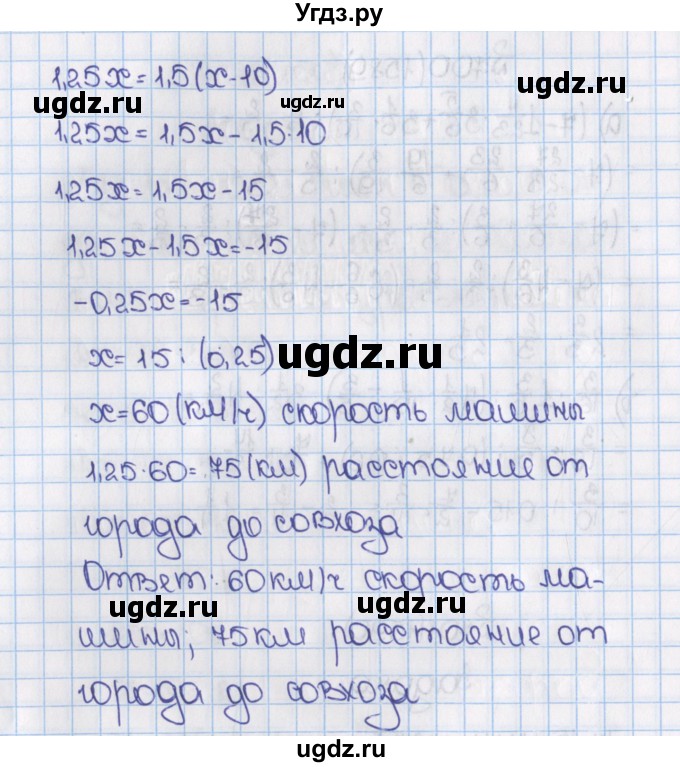 Угдз.ру
1,25x = 1,5(x-10)
ugdz.ru
ugdz.ru
1,25x = 1,5x - 1,5·10
1,25x = 1,5x - 15
1,25x - 1,5x = -15
-0,25x = -15
x = 15 : (0,25)
ugdz.ru
x = 60 (км/ч) скорость машины
1,25·60 = 75 (км) расстояние от
ugdz.ru
города до совхоза
Ответ: 60 км/ч скорость ма-
ugdz.ru ugdz.ru
шины; 75 км расстояние от
города до совхоза
ugdz.ru